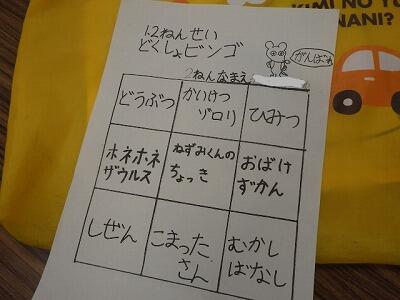 1.2ねんせい
どくしょビンゴ
がんばれ
2ねんなまえ
どうぶつ
かいけつ
ゾロリ
ひみつ
ホネホネ
ザウルス
ねずみくんの
ちょっき
おばけ
ずかん
しぜん
こまった
さん
むかし
ばなし
NANI?